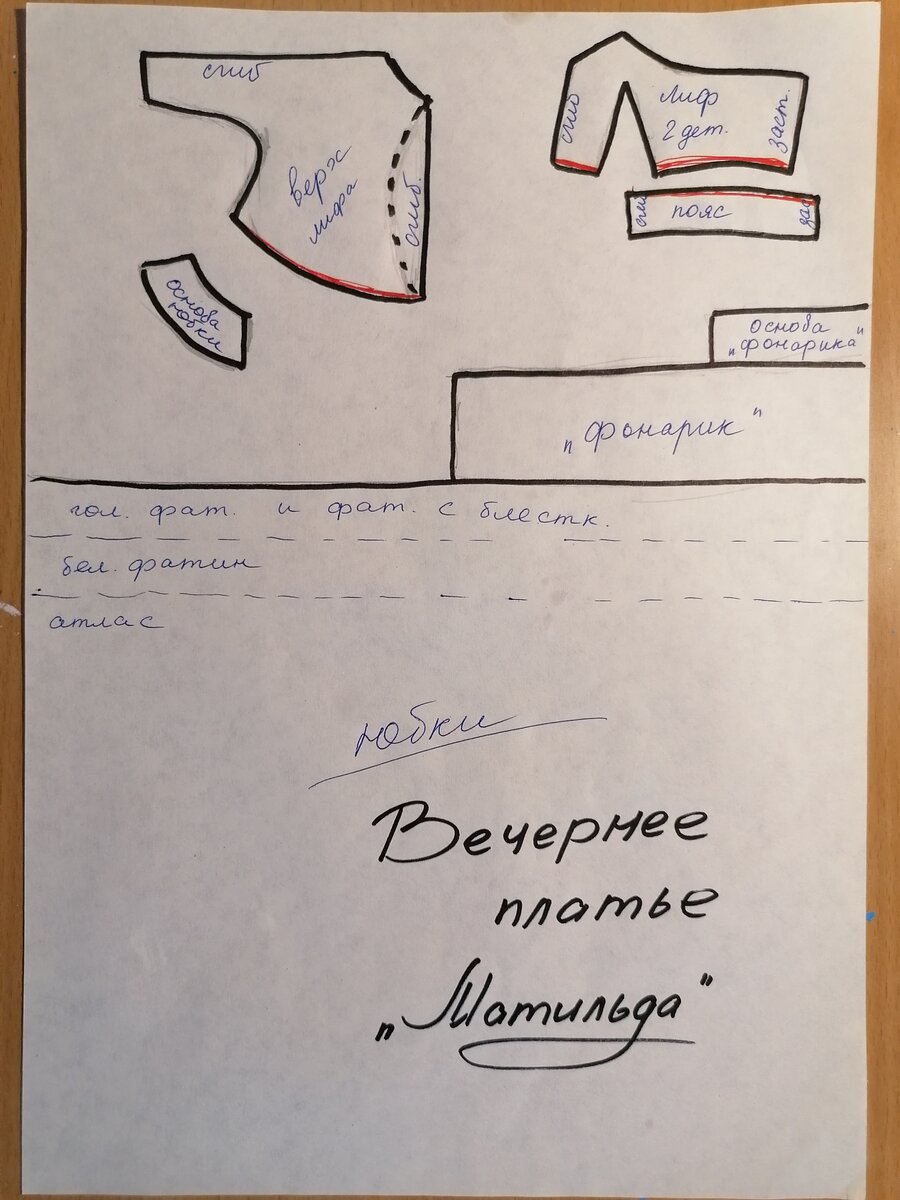 сгиб
верх
лифа
сгиб.
основа
юбки
сгиб
лиф
2 дет.
заст.
сгиб
пояс
зас
основа
„фонарика"
„фонарик"
гол. фат. и фат. с блестк.
бел. фатин
атлас
юбки
Вечернее
платье
„Матильда"